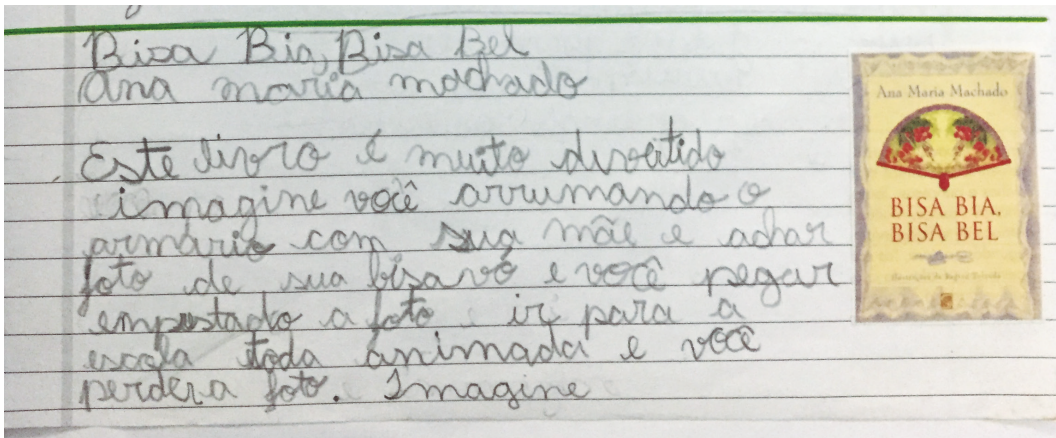 Bisa Bia, Bisa Bel
Ana maria machado
Este livro é muito divertido
imagine você arrumando o
armário com sua mãe e achar
foto de sua bisavó e você pegar
empustado a foto e ir para a
escola toda animada e você
perder a foto. Imagine
Ana Maria Machado
BISA BIA,
BISA BEL